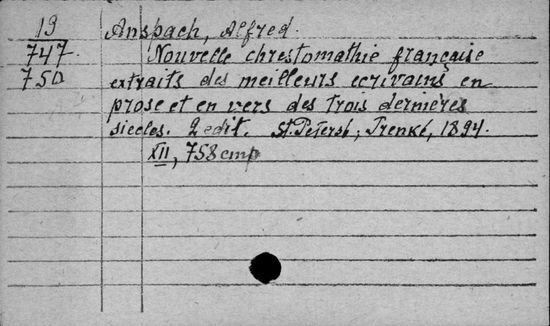 19 Anspach, Alfred.
747 Nouvelle chrestomathie française
750 extraits des meilleurs ecrivains en
prose et en vers des trois dernières
siecles. 2 edit. St. Petersb; Trenké, 1894.
XII, 758 стр